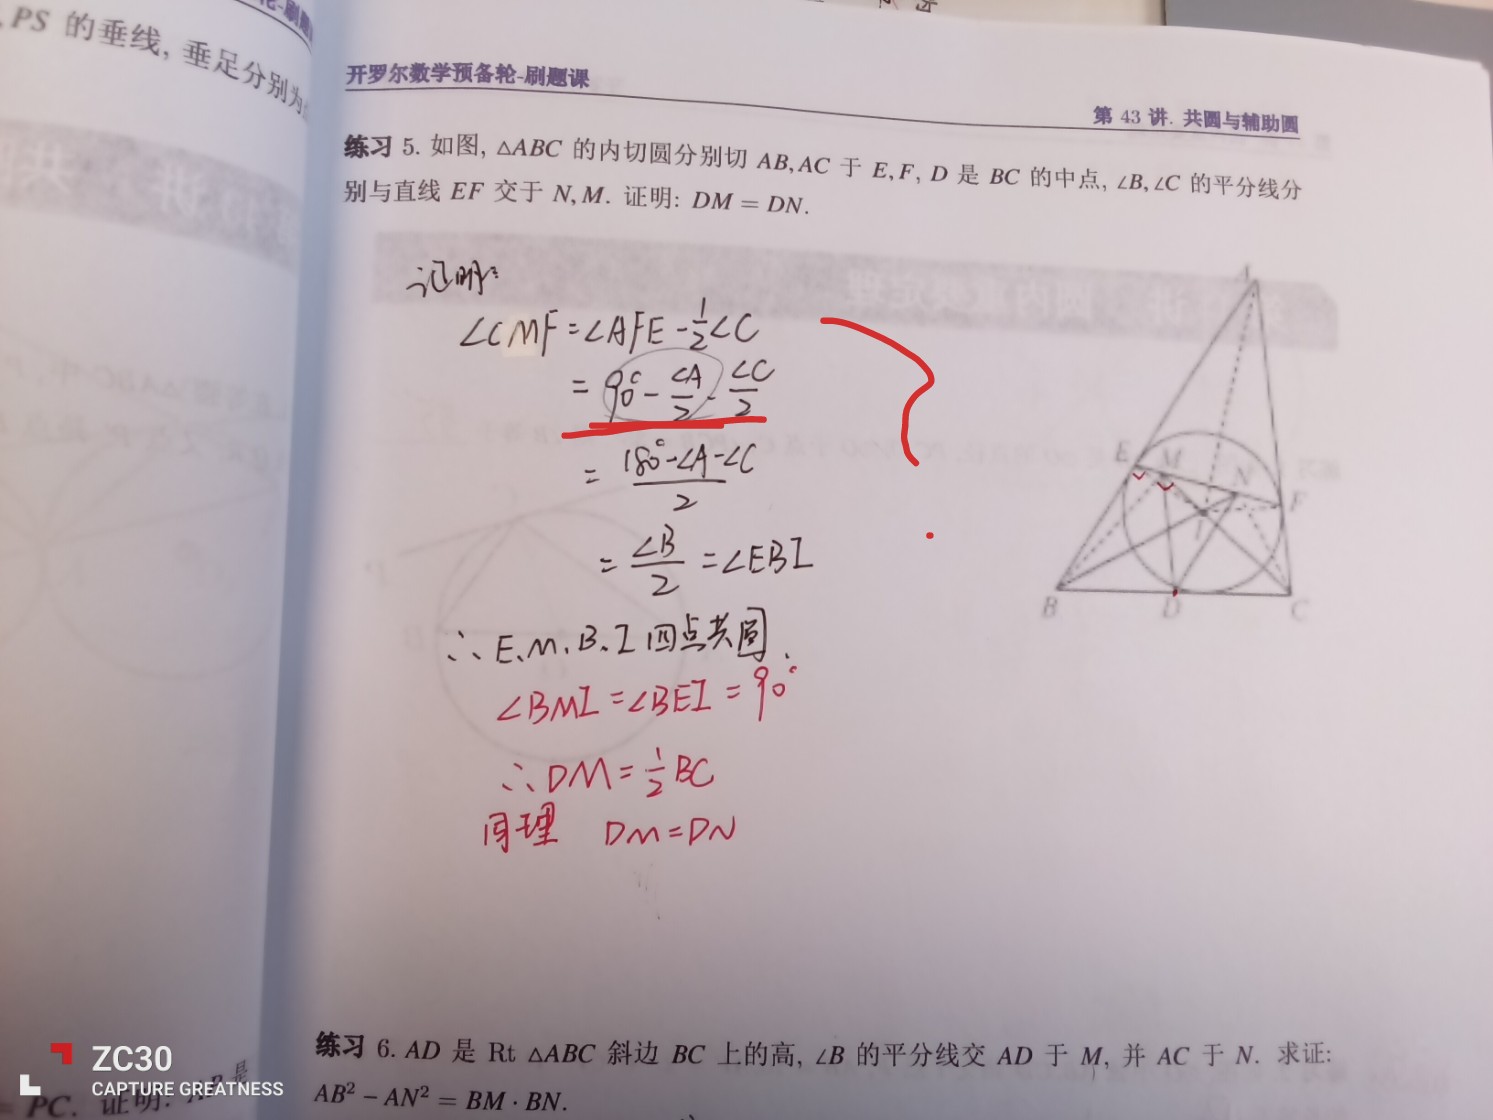 , PS 的垂线, 垂足分别为
开罗尔数学预备轮-刷题课
第 43 讲. 共圆与辅助圆
练习 5. 如图, △ABC 的内切圆分别切 AB, AC 于 E, F, D 是 BC 的中点, ∠B, ∠C 的平分线分
别与直线 EF 交于 N, M. 证明: DM = DN.
证明:
∠CMF = ∠AFE - 1/2 ∠C
= 90° - ∠A/2 - ∠C/2
= (180° - ∠A - ∠C)/2
= ∠B/2 = ∠EBI
∴ E、M、B、I 四点共圆.
∠BMI = ∠BEI = 90°
∴ DM = 1/2 BC
同理 DM = DN
E M N F
I
B D C
练习 6. AD 是 Rt △ABC 斜边 BC 上的高, ∠B 的平分线交 AD 于 M, 并 AC 于 N. 求证:
AB² − AN² = BM · BN.
PC. 证明:
ZC30
CAPTURE GREATNESS